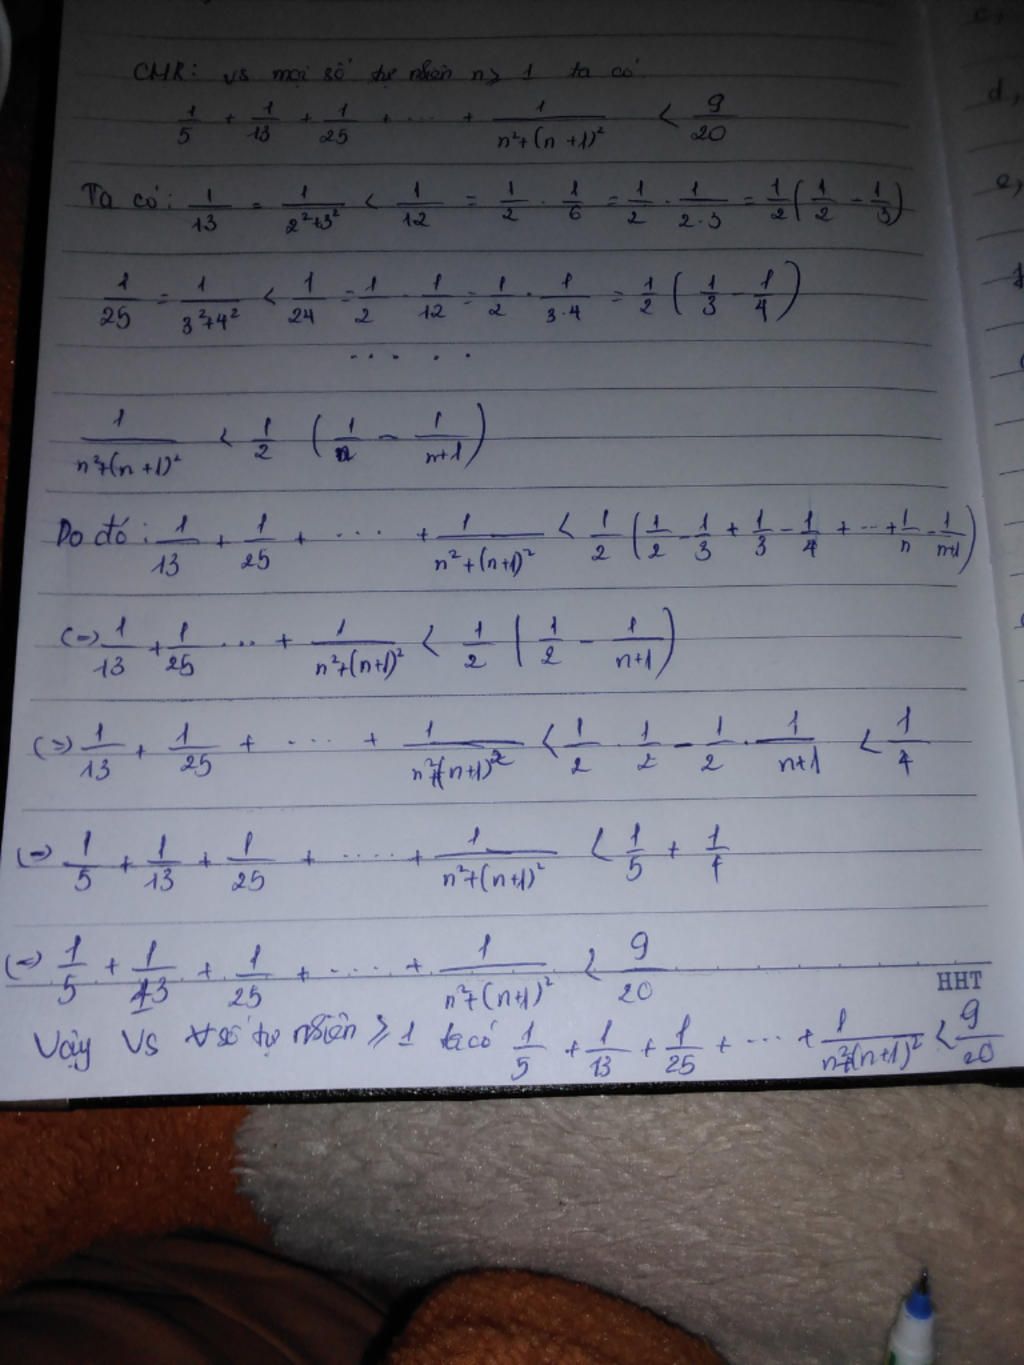 CMR: vs mọi số tự nhiên n ≥ 1 ta có
1/5 + 1/13 + 1/25 + .... + 1/(n²+(n+1)²) < 9/20
Ta có: 1/13 = 1/(2²+3²) < 1/12 = 1/2 . 1/6 = 1/2 . 1/(2.3) = 1/2 (1/2 - 1/3)
1/25 = 1/(3²+4²) < 1/24 = 1/2 . 1/12 = 1/2 . 1/(3.4) = 1/2 (1/3 - 1/4)
. . . . . .
1/(n²+(n+1)²) < 1/2 (1/n - 1/(n+1))
Do đó: 1/13 + 1/25 + .... + 1/(n²+(n+1)²) < 1/2 (1/2 - 1/3 + 1/3 - 1/4 + ... + 1/n - 1/(n+1))
(=) 1/13 + 1/25 ... + 1/(n²+(n+1)²) < 1/2 (1/2 - 1/(n+1))
(=) 1/13 + 1/25 + .... + 1/(n²+(n+1)²) < 1/2 . 1/2 - 1/2 . 1/(n+1) < 1/4
(=) 1/5 + 1/13 + 1/25 + .... + 1/(n²+(n+1)²) < 1/5 + 1/4
(=) 1/5 + 1/13 + 1/25 + .... + 1/(n²+(n+1)²) < 9/20
HHT
Vậy Vs ∀ số tự nhiên ≥ 1 ta có 1/5 + 1/13 + 1/25 + ... + 1/(n²+(n+1)²) < 9/20
d,
e,